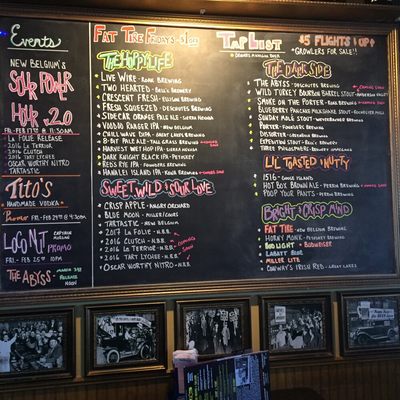 Events
NEW BELGIUM'S
SOUR POWER
HOUR 2.0
FRI-FEB 17TH @ 11:30AM
LA FOLIE RELEASE
2016 LE TERROIR
2016 CLUTCH
2016 TART LYCHEE
OSCAR WORTHY NITRO
TARTASTIC
TITO'S
HANDMADE VODKA
PROMO
FRI-FEB 24TH
LOGONIT
PROMO
FRI-FEB 25TH
10PM
THE ABYSS
RELEASE
NOON
FAT TIRE FRIDAYS
THE HOPPY LIFE
LIVE WIRE - ROAK BREWING
TWO HEARTED - BELL'S BREWERY
CRESCENT FRESH - ELYSIAN BREWING
FRESH SQUEEZED - DESCHUTES BREWING
SIDECAR ORANGE PALE ALE - SIERRA NEVADA
VOODOO RANGER - NEW BELGIUM
CHILL WAVE DIPA - GREAT LAKES BREWING
8-BIT PALE ALE - TALL GRASS BREWING
HARVEST WET HOP IPA - SIERRA NEVADA
DARK KNIGHT BLACK IPA - PETOSKEY
REDS RYE IPA - FOUNDERS BREWING
HANALEI ISLAND IPA - KONA BREWING
SWEET, WILD & SOUR LOVE
CRISP APPLE - ANGRY ORCHARD
BLUE MOON - MILLER/COORS
TARTASTIC - NEW BELGIUM
2017 LA FOLIE - N.B.B.
2016 CLUTCH - N.B.B.
2016 LE TERROIR - N.B.B.
COMING SOON
2016 TART LYCHEE - N.B.B.
OSCAR WORTHY NITRO - N.B.B.
TAP LIST
$5 FLIGHTS UP
*GROWLERS FOR SALE!!
THE DARK SIDE
THE ABYSS - DESCHUTES BREWING
WILD TURKEY BOURBON BARREL STOUT - ANDERSON VALLEY
SMOKE ON THE PORTER - ROAK BREWING
BLUEBERRY PANCAKE MILK STOUT
SUNDAY MOLE STOUT - WEYERBACHER BREWING
PORTER - FOUNDERS BREWING
DISORTER - GRIFFIN CLAW BREWING
EXPEDITION STOUT - BELL'S BREWERY
THREE PHILOSOPHERS
LIL TOASTED & NUTTY
1516 - GOOSE ISLAND
HOT BOX BROWN ALE - PERRIN BREWING
POOP YOUR PANTS - PERRIN BREWING
BRIGHT & CRISP MIND
FAT TIRE - NEW BELGIUM BREWING
HORNY MONK - PETOSKEY BREWING
BUD LIGHT
BUDWEISER
LABATT BLUE
MILLER LITE
CONWAY'S IRISH RED - GREAT LAKES